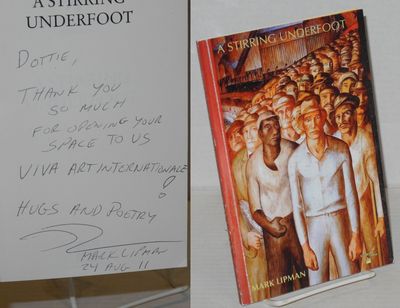 A STIRRING
UNDERFOOT
DOTTIE,
THANK YOU
SO MUCH
FOR OPENING YOUR
SPACE TO US
VIVA ART INTERNATIONALE
!
HUGS AND POETRY
MARK LIPMAN
24 AUG 11
A STIRRING UNDERFOOT
MARK LIPMAN